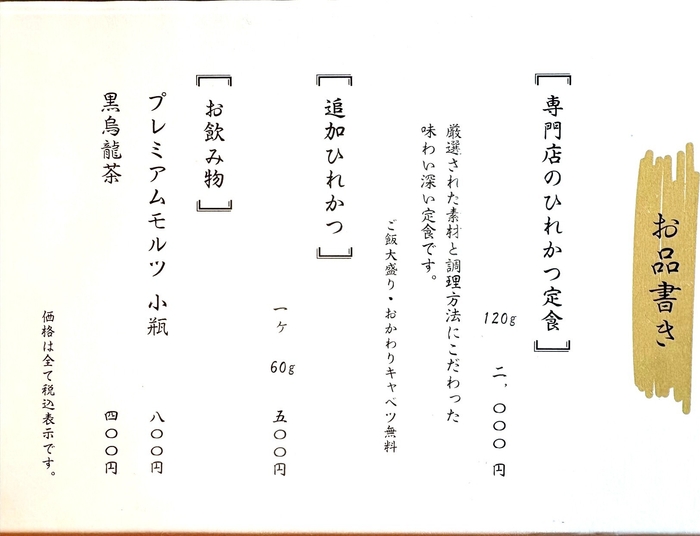 お品書き
『専門店のひれかつ定食』
120g 二,〇〇〇円
厳選された素材と調理方法にこだわった
味わい深い定食です。
ご飯大盛り・おかわりキャベツ無料
『追加ひれかつ』
一ヶ 60g 五〇〇円
『お飲み物』
プレミアムモルツ 小瓶 八〇〇円
黒烏龍茶 四〇〇円
価格は全て税込表示です。